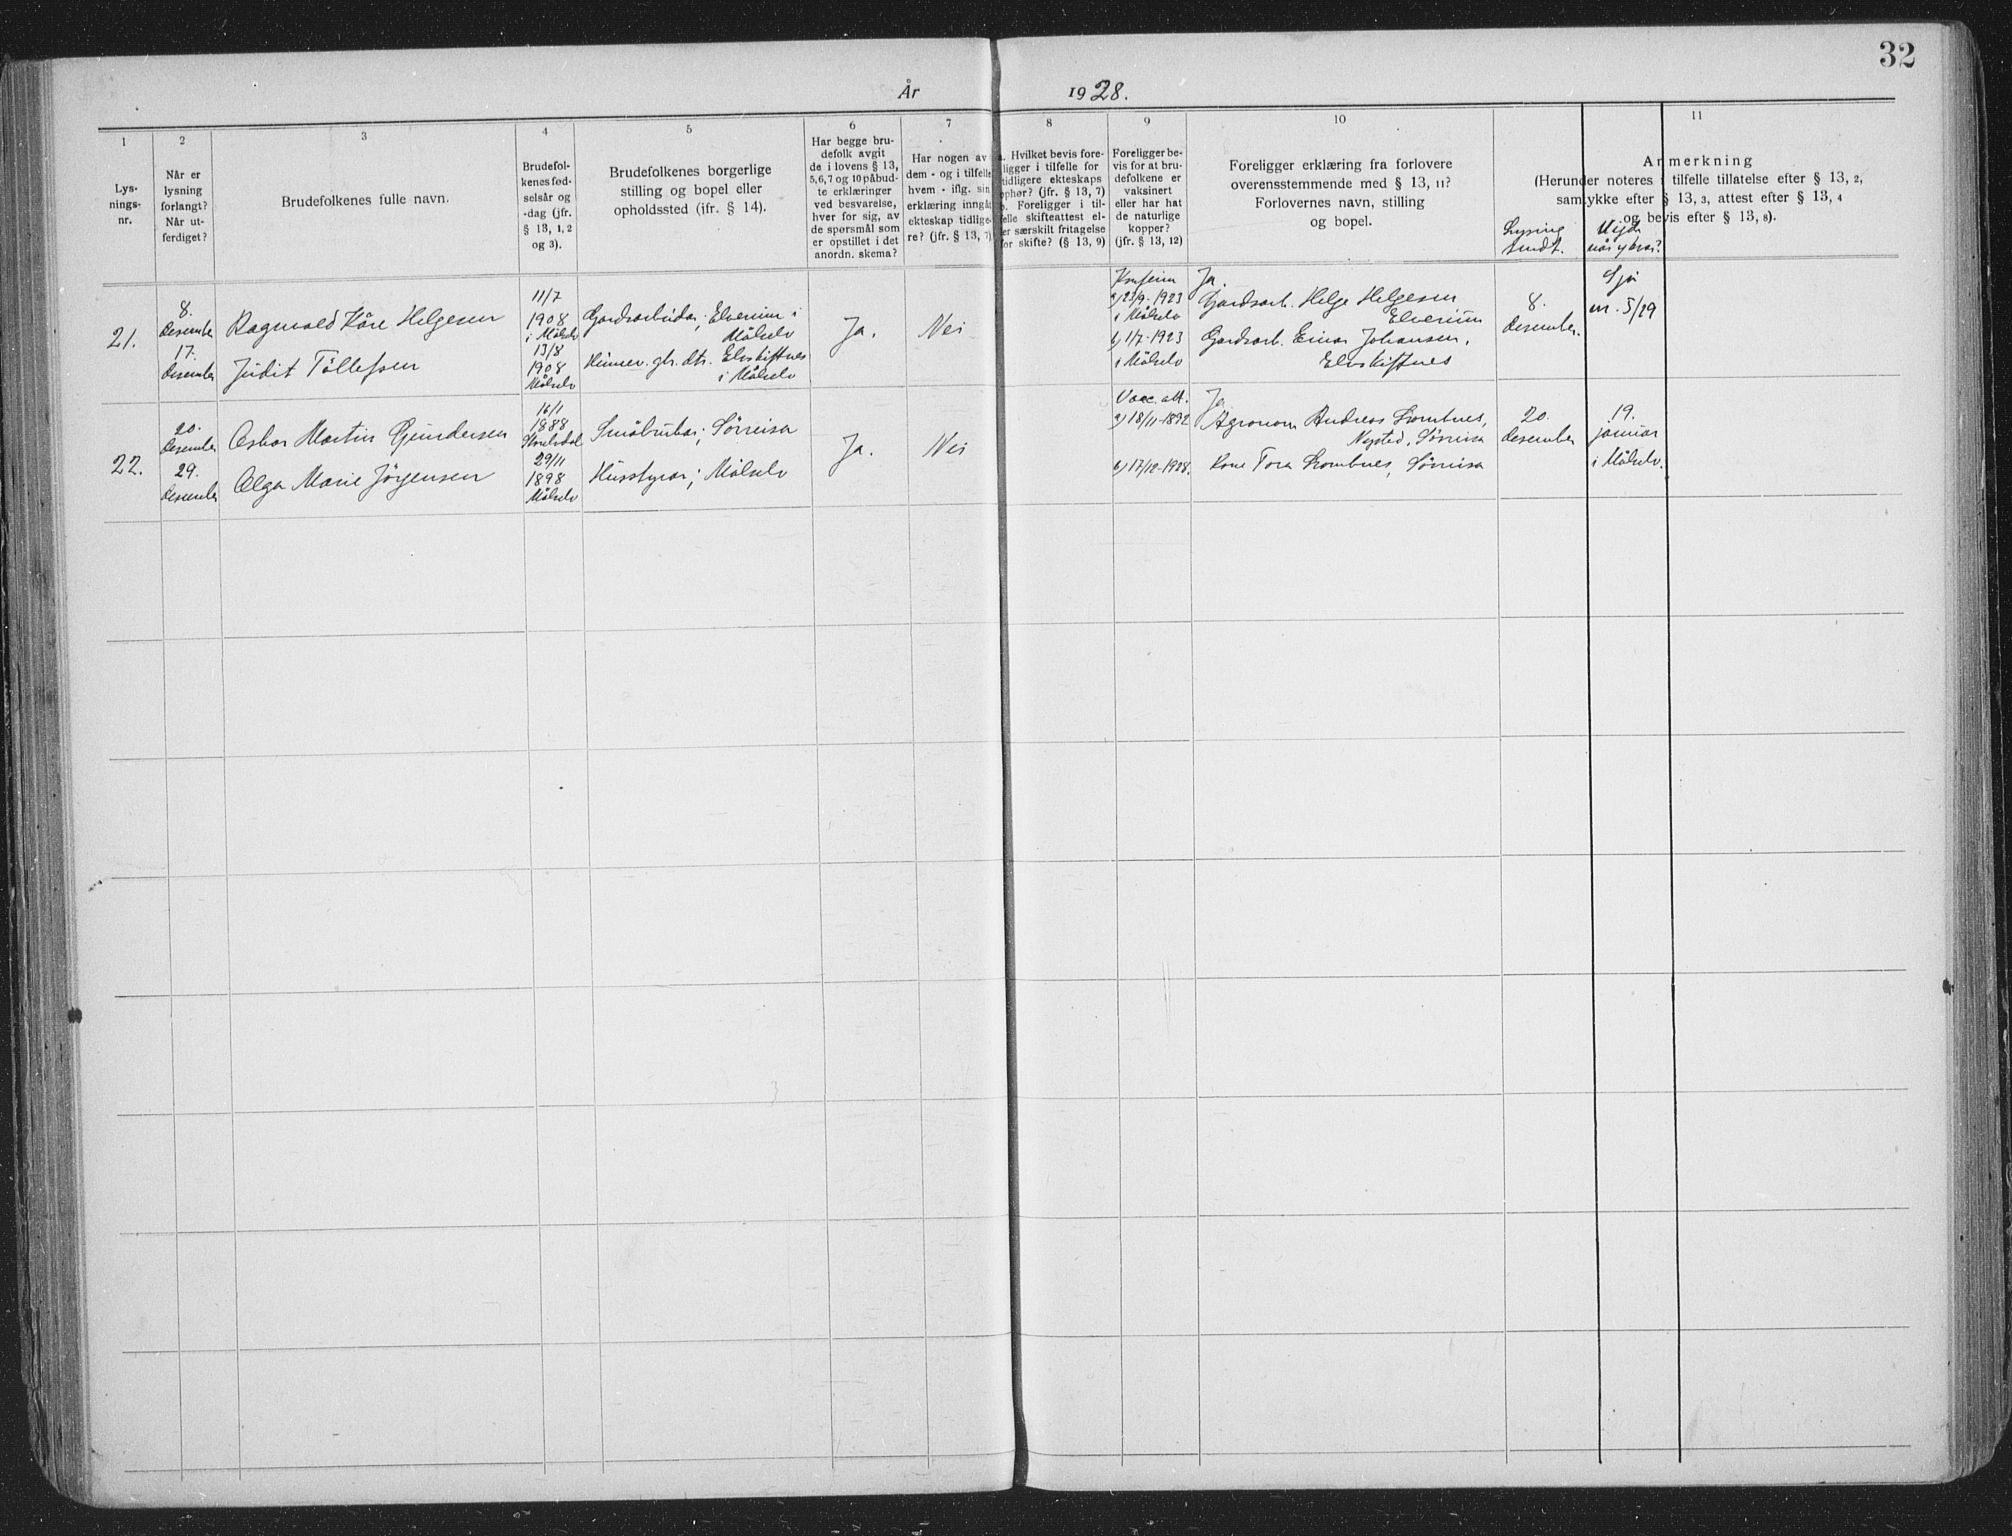 32
År 1928.
1
Lys-
nings-
nr.
2
Når er
lysning
forlangt?
Når ut-
ferdiget?
3
Brudefolkenes fulle navn.
4
Brudefol-
kenes fød-
selsår og
-dag (jfr.
§ 13, 1, 2
og 3).
5
Brudefolkenes borgerlige
stilling og bopel eller
opholdssted (ifr. § 14).
6
Har begge bru-
defolk avgit
de i lovens § 13,
5, 6, 7 og 10 påbud-
te erklæringer
ved besvarelse,
hver for sig, av
de spørsmål som
er opstillet i det
anordn. skema?
7
Har nogen av
dem - og i tilfelle
hvem - iflg. sin
erklæring inngåt
ekteskap tidlige-
re? (jfr. § 13, 7)
8
a. Hvilket bevis fore-
ligger i tilfelle for
tidligere ekteskaps
ophør? (jfr. § 13, 7)
b. Foreligger i til-
felle skifteattest el-
ler særskilt fritagelse
for skifte? (§ 13, 9)
9
Foreligger be-
vis for at bru-
defolkene er
vaksinert
eller har hat
de naturlige
kopper?
(jfr. § 13, 12)
10
Foreligger erklæring fra forlovere
overensstemmende med § 13, 11?
Forlovernes navn, stilling
og bopel.
11
Anmerkning
(Herunder noteres i tilfelle tillatelse efter § 13, 2,
samtykke efter § 13, 3, attest efter § 13, 4
og bevis efter § 13, 8).
Lysing
sendt.
Vigde
når og hvor?
21.
8.
desember
17.
desember
Ragnvald Kåre Helgesen
Judit Tollefsen
11/7
1908
i Målselv
13/8
1908
Målselv
Gardsarbeider; Elverum i
Målselv
Elvskiftnes
i Målselv
Ja.
Nei
23/9-1923
i Målselv
b) 1/7-1923
i Målselv
Ja.
Gardsarb. Helge Helgesen
Elverum
Gardsarb. Einar Johansen,
Elvskiftnes
8.
desember.
Sjå
nr. 5/29
22.
20.
desember
29.
desember
Oskar Martin Gundersen
Olga Marie Jörgensen
16/1
1888
29/11
1898
Målselv
Småbruker; Sörreisa
Husstyrar; Målselv
Ja.
Nei
Vacc. att.
a) 18/11-1892
b) 17/12-1928.
Ja
Agronom Andreas Lombnes,
Nysted, Sörreisa
Kone Tora Lombnes, Sörreisa
20.
desember
19.
januar
i Målselv.